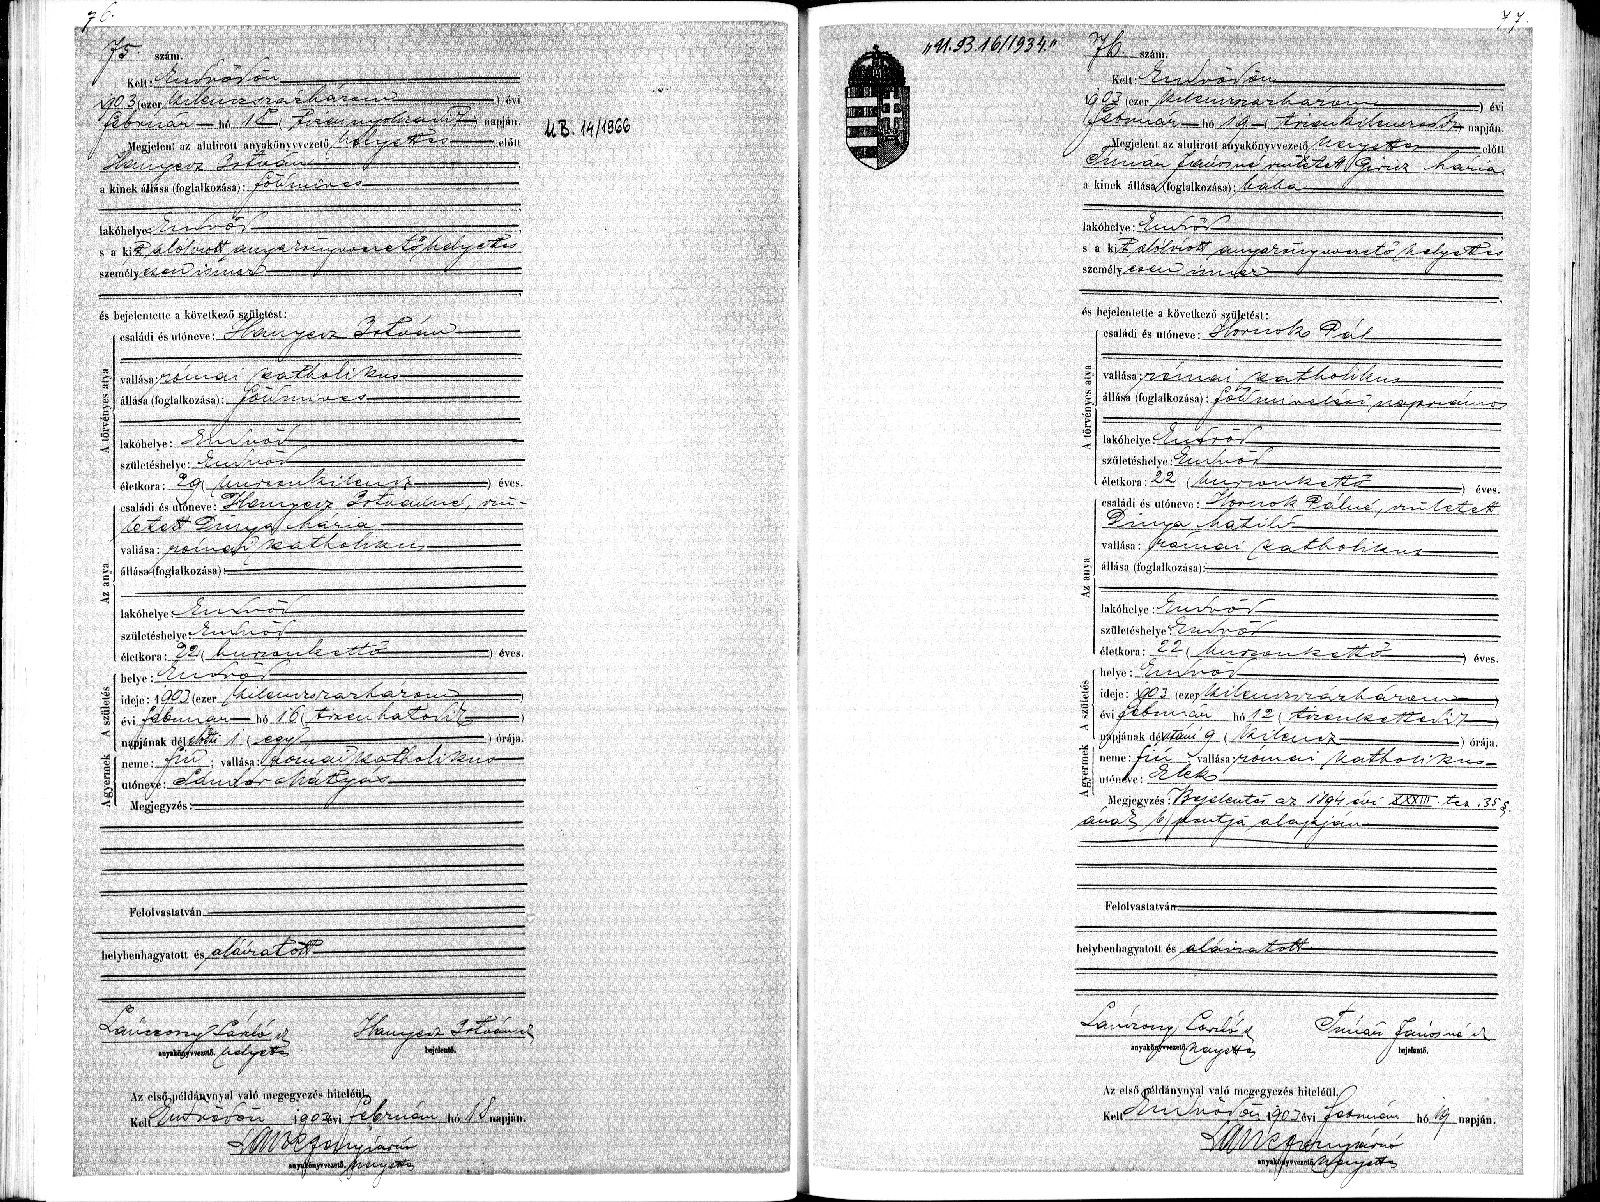 76.
75 szám.
Kelt: Endrődön
1903 (ezer kilenczszázhárom ) évi
február hó 18 ( tizennyolczadik ) napján.
M.B. 14/1966
Megjelent az alulirott anyakönyvvezető helyettes előtt
Hanyecz István
a kinek állása (foglalkozása): földmives
lakóhelye: Endrőd
s a kit alólirott anyakönyvvezető helyettes
személyesen ismer
és bejelentette a következő születést:
A törvényes atya
családi és utóneve: Hanyecz István
vallása: római katholikus
állása (foglalkozása): földmives
lakóhelye: Endrőd
születéshelye: Endrőd
életkora: 29 ( huszonkilencz ) éves.
Az anya
családi és utóneve: Hanyecz Istvánné, szü-
letett Dinya Mária
vallása: római katholikus
állása (foglalkozása):
lakóhelye: Endrőd
születéshelye: Endrőd
életkora: 22 ( huszonkettő ) éves.
A születés
helye: Endrőd
ideje: 1903 (ezer kilenczszázhárom )
évi február hó 16 ( tizenhatodik )
napjának délelőtti 1 ( egy ) órája.
A gyermek
neme: fiú; vallása: római katholikus
utóneve: Sándor Mátyás
Megjegyzés:
Felolvastatván
helybenhagyatott és aláiratott
László Hanyecz István
anyakönyvvezető. helyettes bejelentő.
Az első példánynyal való megegyezés hiteléül,
Kelt Endrődön 1903 évi február hó 18 napján.
anyakönyvvezető. helyettes
77.
„U.B 16/1934."
76 szám.
Kelt: Endrődön
1903 (ezer kilenczszázhárom ) évi
február hó 19 ( tizenkilenczedik ) napján.
Megjelent az alulirott anyakönyvvezető helyettes előtt
Jánosné született Giricz Mária
a kinek állása (foglalkozása): bába
lakóhelye: Endrőd
s a kit alólirott anyakönyvvezető helyettes
személyesen ismer
és bejelentette a következő születést:
A törvényes atya
családi és utóneve: Hornok Pál
vallása: római katholikus
állása (foglalkozása): földmivelési napszámos
lakóhelye: Endrőd
születéshelye: Endrőd
életkora: 22 ( huszonkettő ) éves.
Az anya
családi és utóneve: Hornok Pálné, született
Dinya Matild
vallása: római katholikus
állása (foglalkozása):
lakóhelye: Endrőd
születéshelye: Endrőd
életkora: 22 ( huszonkettő ) éves.
A születés
helye: Endrőd
ideje: 1903 (ezer kilenczszázhárom )
évi február hó 12 ( tizenkettedik )
napjának délutáni 9 ( kilencz ) órája.
A gyermek
neme: fiú; vallása: római katholikus
utóneve: Elek
Megjegyzés: Bejelentés az 1894 évi XXXIII. tcz. 35 §.
ának b) pontja alapján
Felolvastatván
helybenhagyatott és aláiratott
László Jánosné
anyakönyvvezető. helyettes bejelentő.
Az első példánynyal való megegyezés hiteléül,
Kelt Endrődön 1903 évi február hó 19 napján.
anyakönyvvezető. helyettes